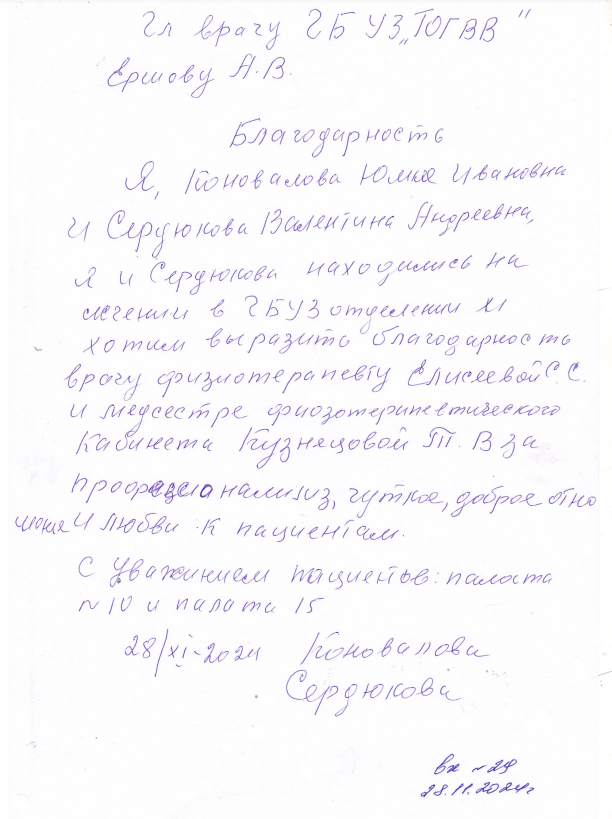 Гл врачу ГБУЗ „ТОГВВ"
Ершову А.В.
Благодарность
Я, Коновалова Юлия Ивановна
И Сердюкова Валентина Андреевна,
я и Сердюкова находились на
лечении в ГБУЗ отделении XI
хотим выразить благодарность
врачу физиотерапевту Елисеевой С.С.
и медсестре физотерапевтического
Кабинета Кузнецовой Т.В за
професионализ, чуткое, доброе отно
шение и любви к пациентам.
С уважинием пациентов: палата
N 10 и палата 15
28/XI-2024 Коновалова
Сердюкова
вх N 29
28.11.2024г